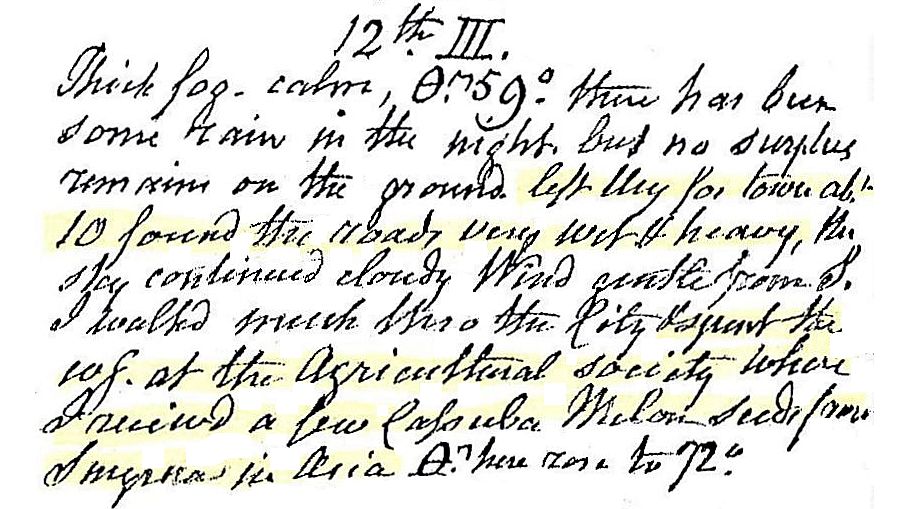 12th III.
Thick fog. calm, 59° there has been
some rain in the night. but no surplus
remains on the ground. left for town abt.
10 found the roads very wet & heavy, the
sky continued cloudy Wind gentle from S.
I walked much thro the City & spent the
at the Agricultural society where
I received a few Cassuba Melon seeds from
Smyrna in Asia here rose to 72°.